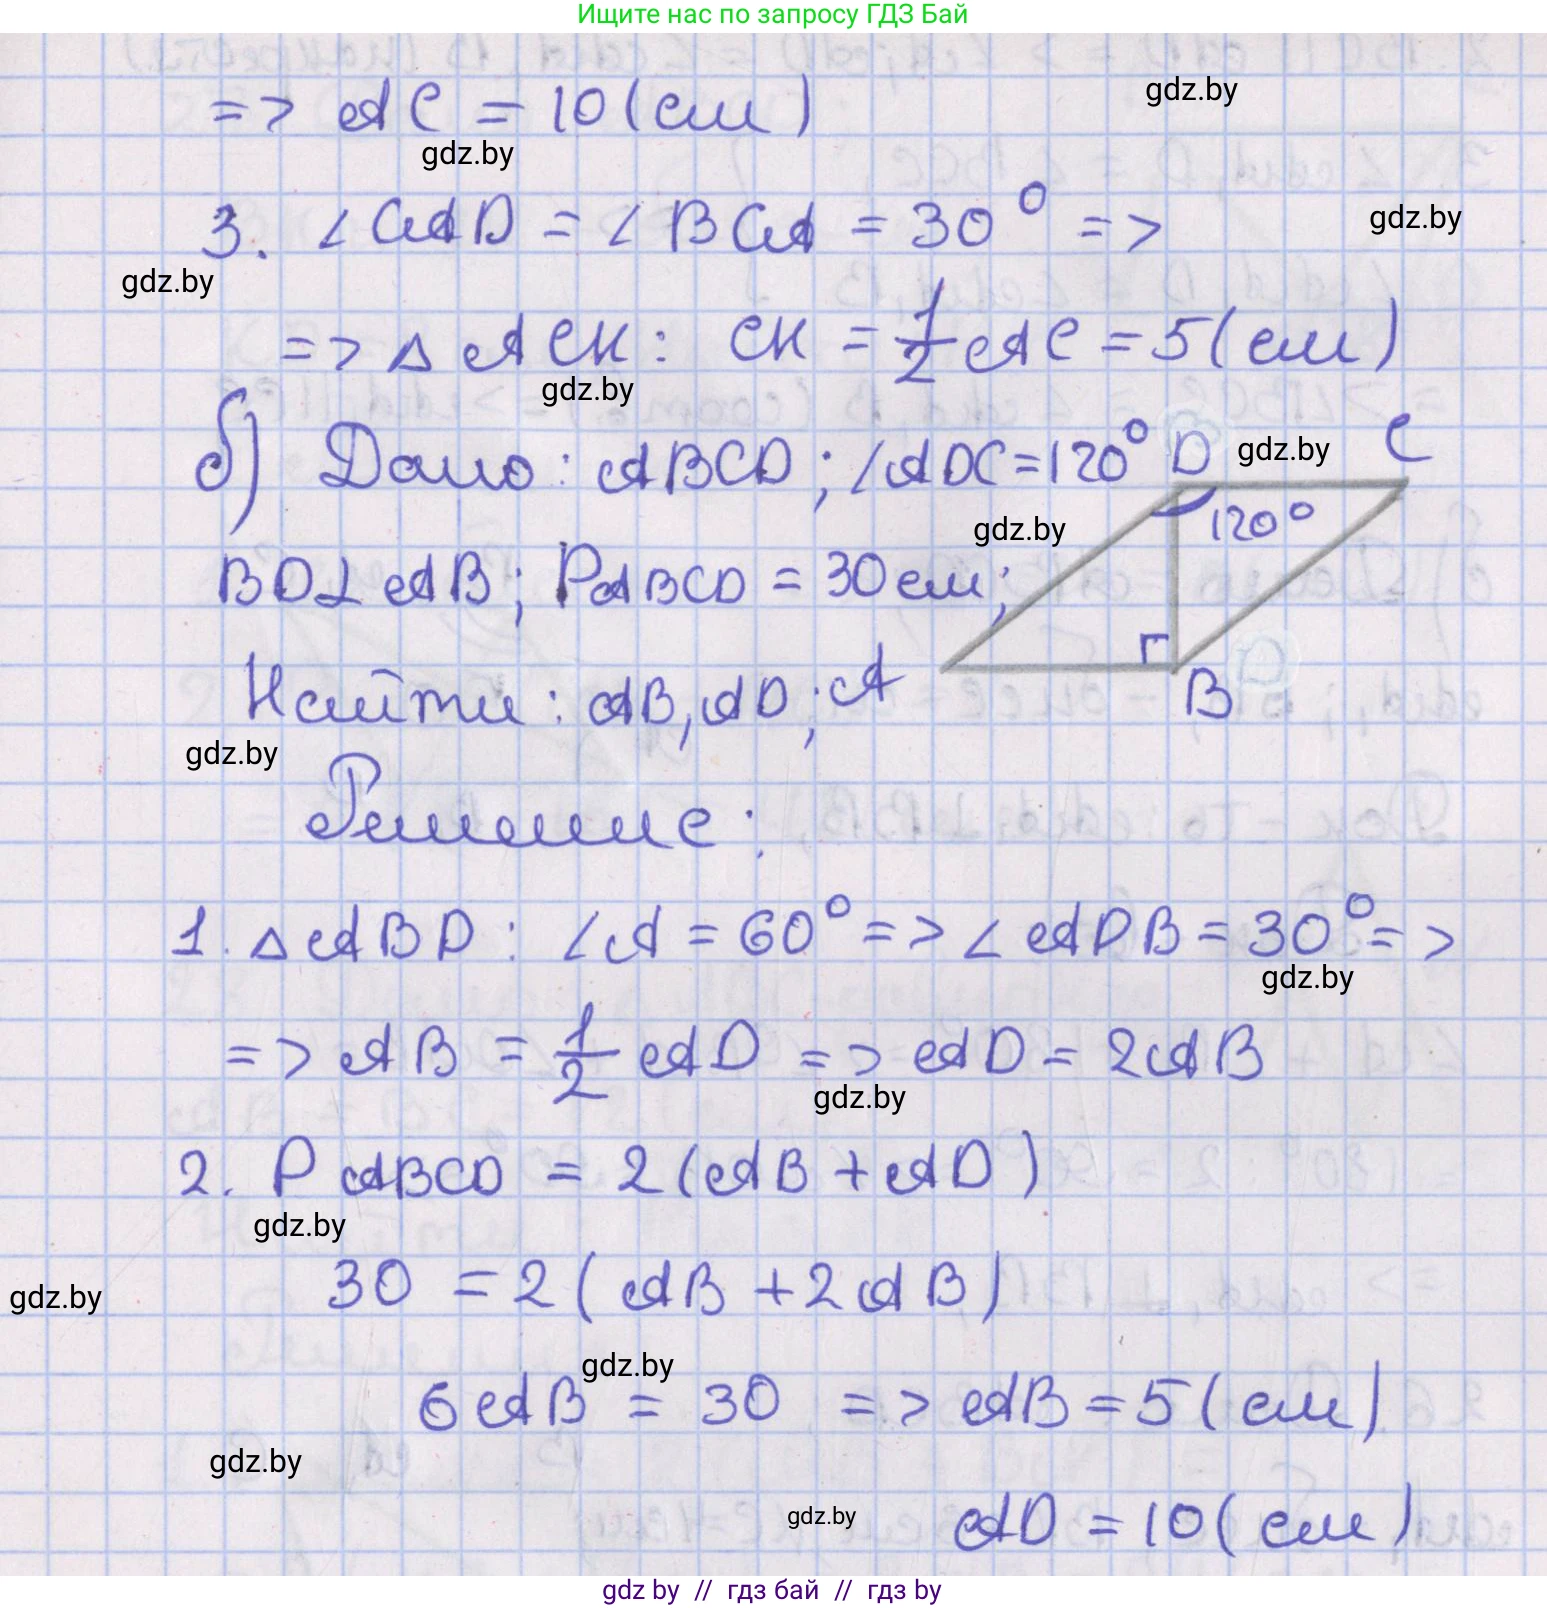 Ищите нас по запросу ГДЗ Бай
=> AC = 10 (см)
gdz.by
gdz.by
3. ∠CAD = ∠BCA = 30° =>
gdz.by
gdz.by
=> △ACK: CK = 1/2 AC = 5 (см)
gdz.by
б) Дано: ABCD; ∠ADC = 120°
D gdz.by C
120°
gdz.by
BD⊥AB; PABCD = 30 см;
Найти: AB, AD;
A
B
gdz.by
Решение:
1. △ABD: ∠A = 60° => ∠ADB = 30° =>
gdz.by
=> AB = 1/2 AD => AD = 2AB
gdz.by
2. PABCD = 2(AB + AD)
gdz.by
30 = 2(AB + 2AB)
gdz.by
gdz.by
6AB = 30 => AB = 5 (см)
gdz.by
gdz.by
AD = 10 (см)
gdz by // гдз бай // гдз by